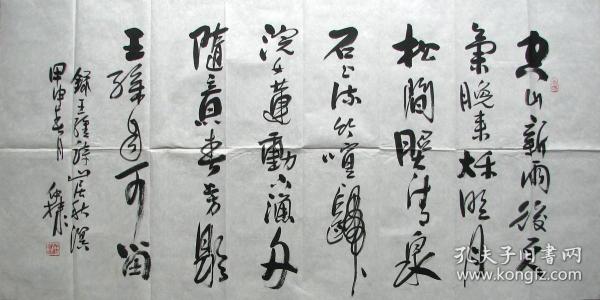 空山新雨後天
氣晚來秋明月
松間照清泉
石上流竹喧歸
浣女蓮動下漁舟
隨意春芳歇
王孫自可留
錄王維詩山居秋溟
甲申春月
孔夫子旧书网
www.kongfz.com